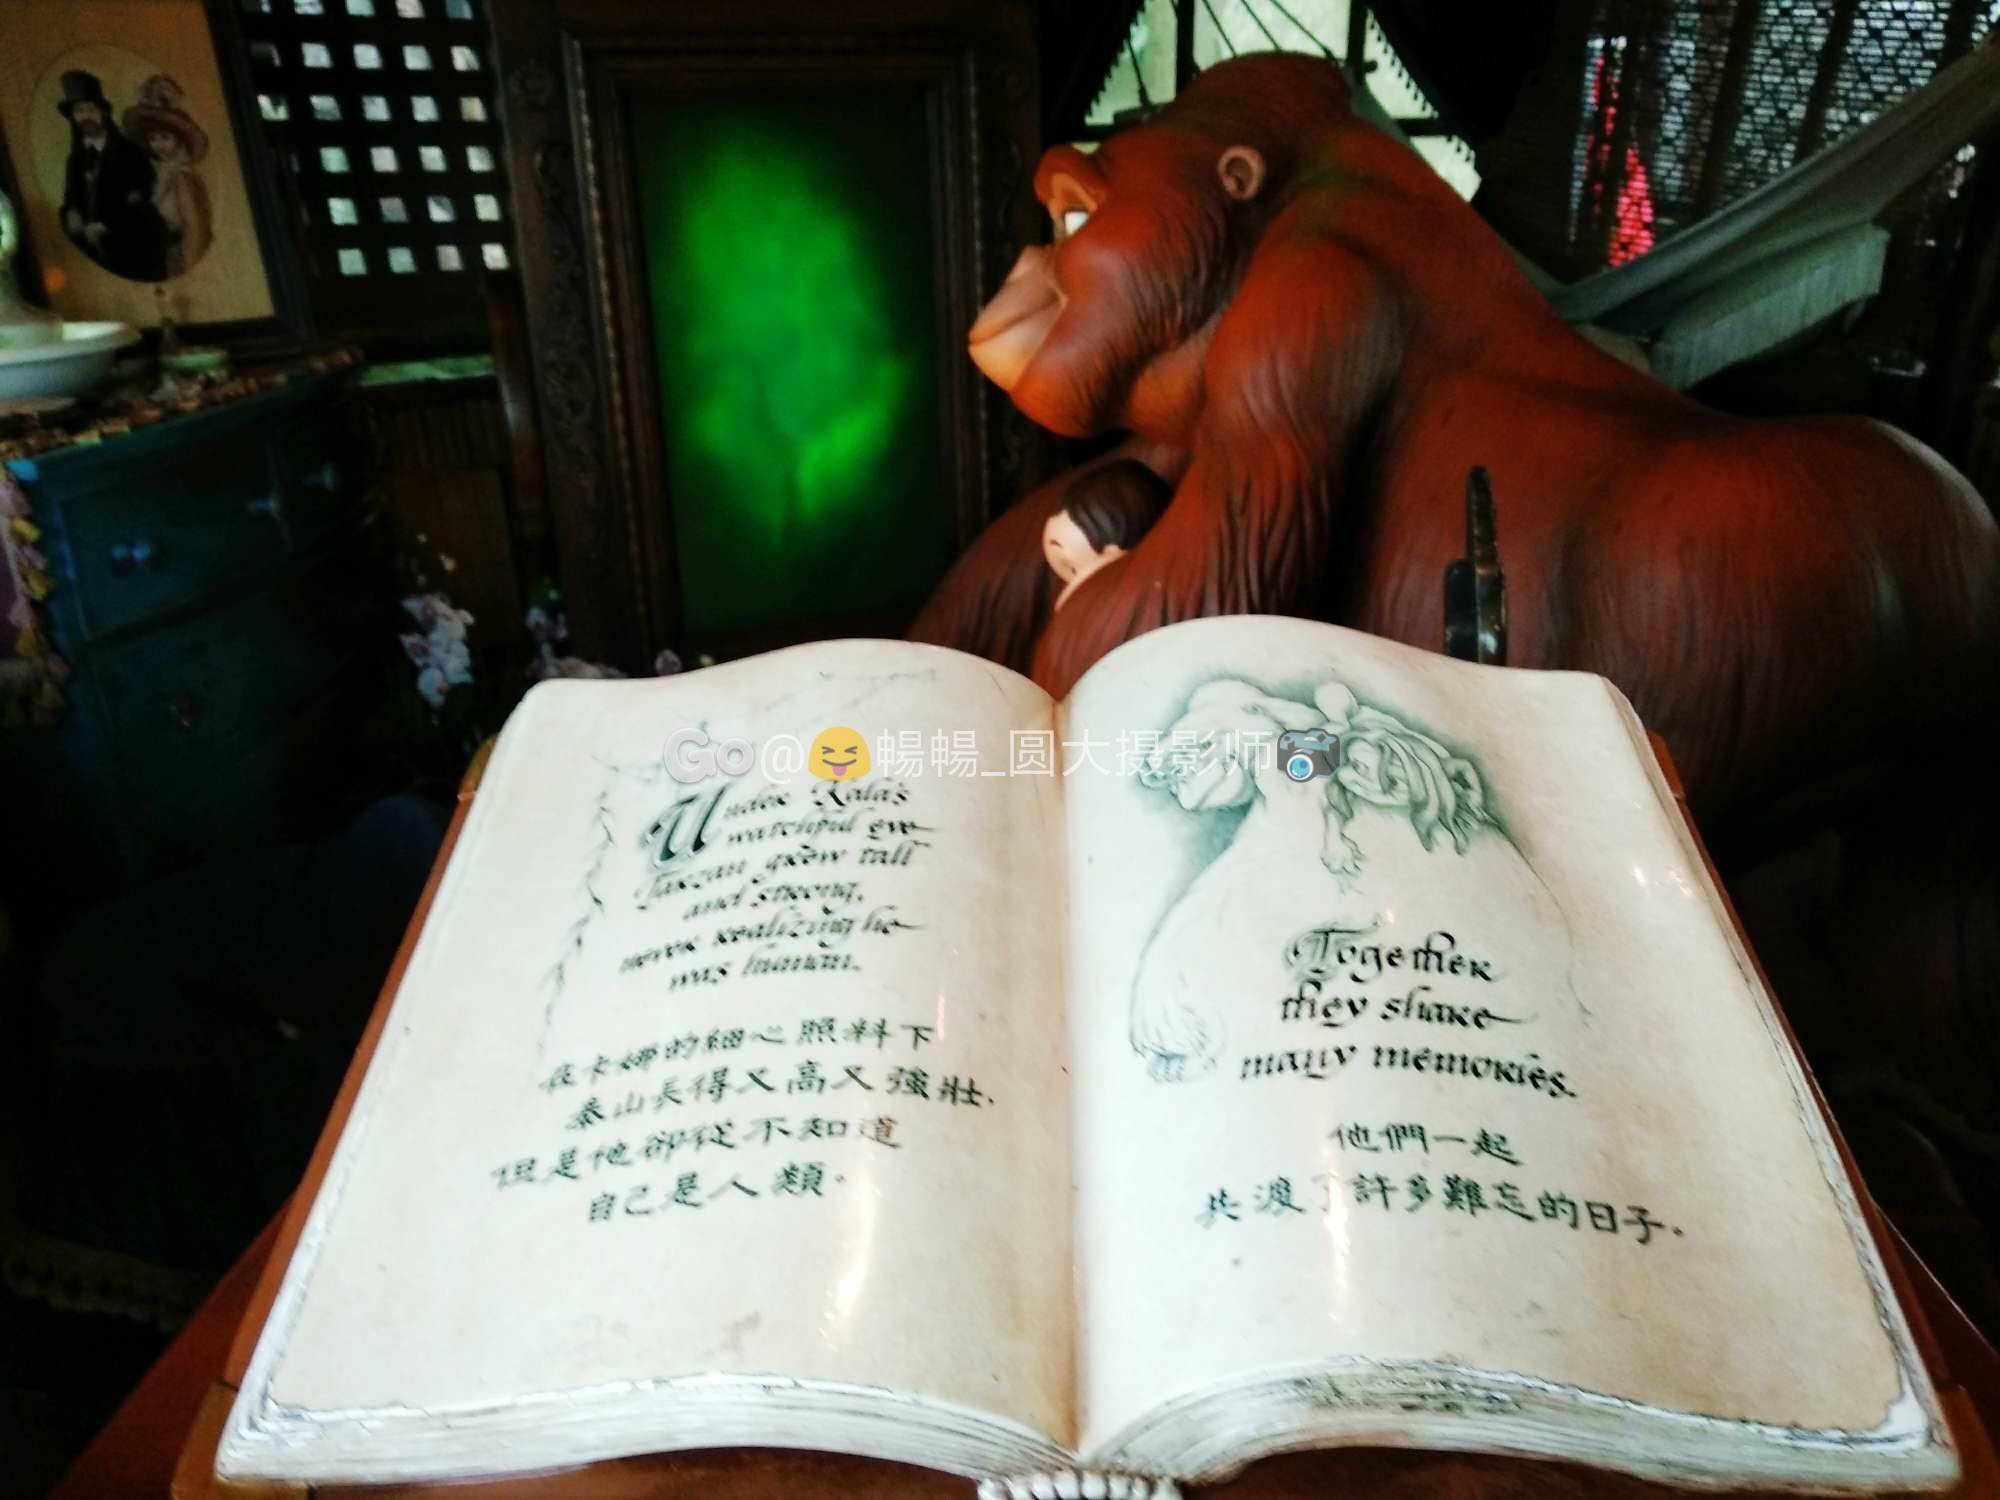 Go@😝暢暢_圆大摄影师📷
Under Kala's
watchful eye
Tarzan grew tall
and strong,
never realizing he
was human.
在卡娜的細心照料下
泰山長得又高又強壯.
但是他卻從不知道
自己是人類.
Together
they share
many memories.
他們一起
共渡了許多難忘的日子.